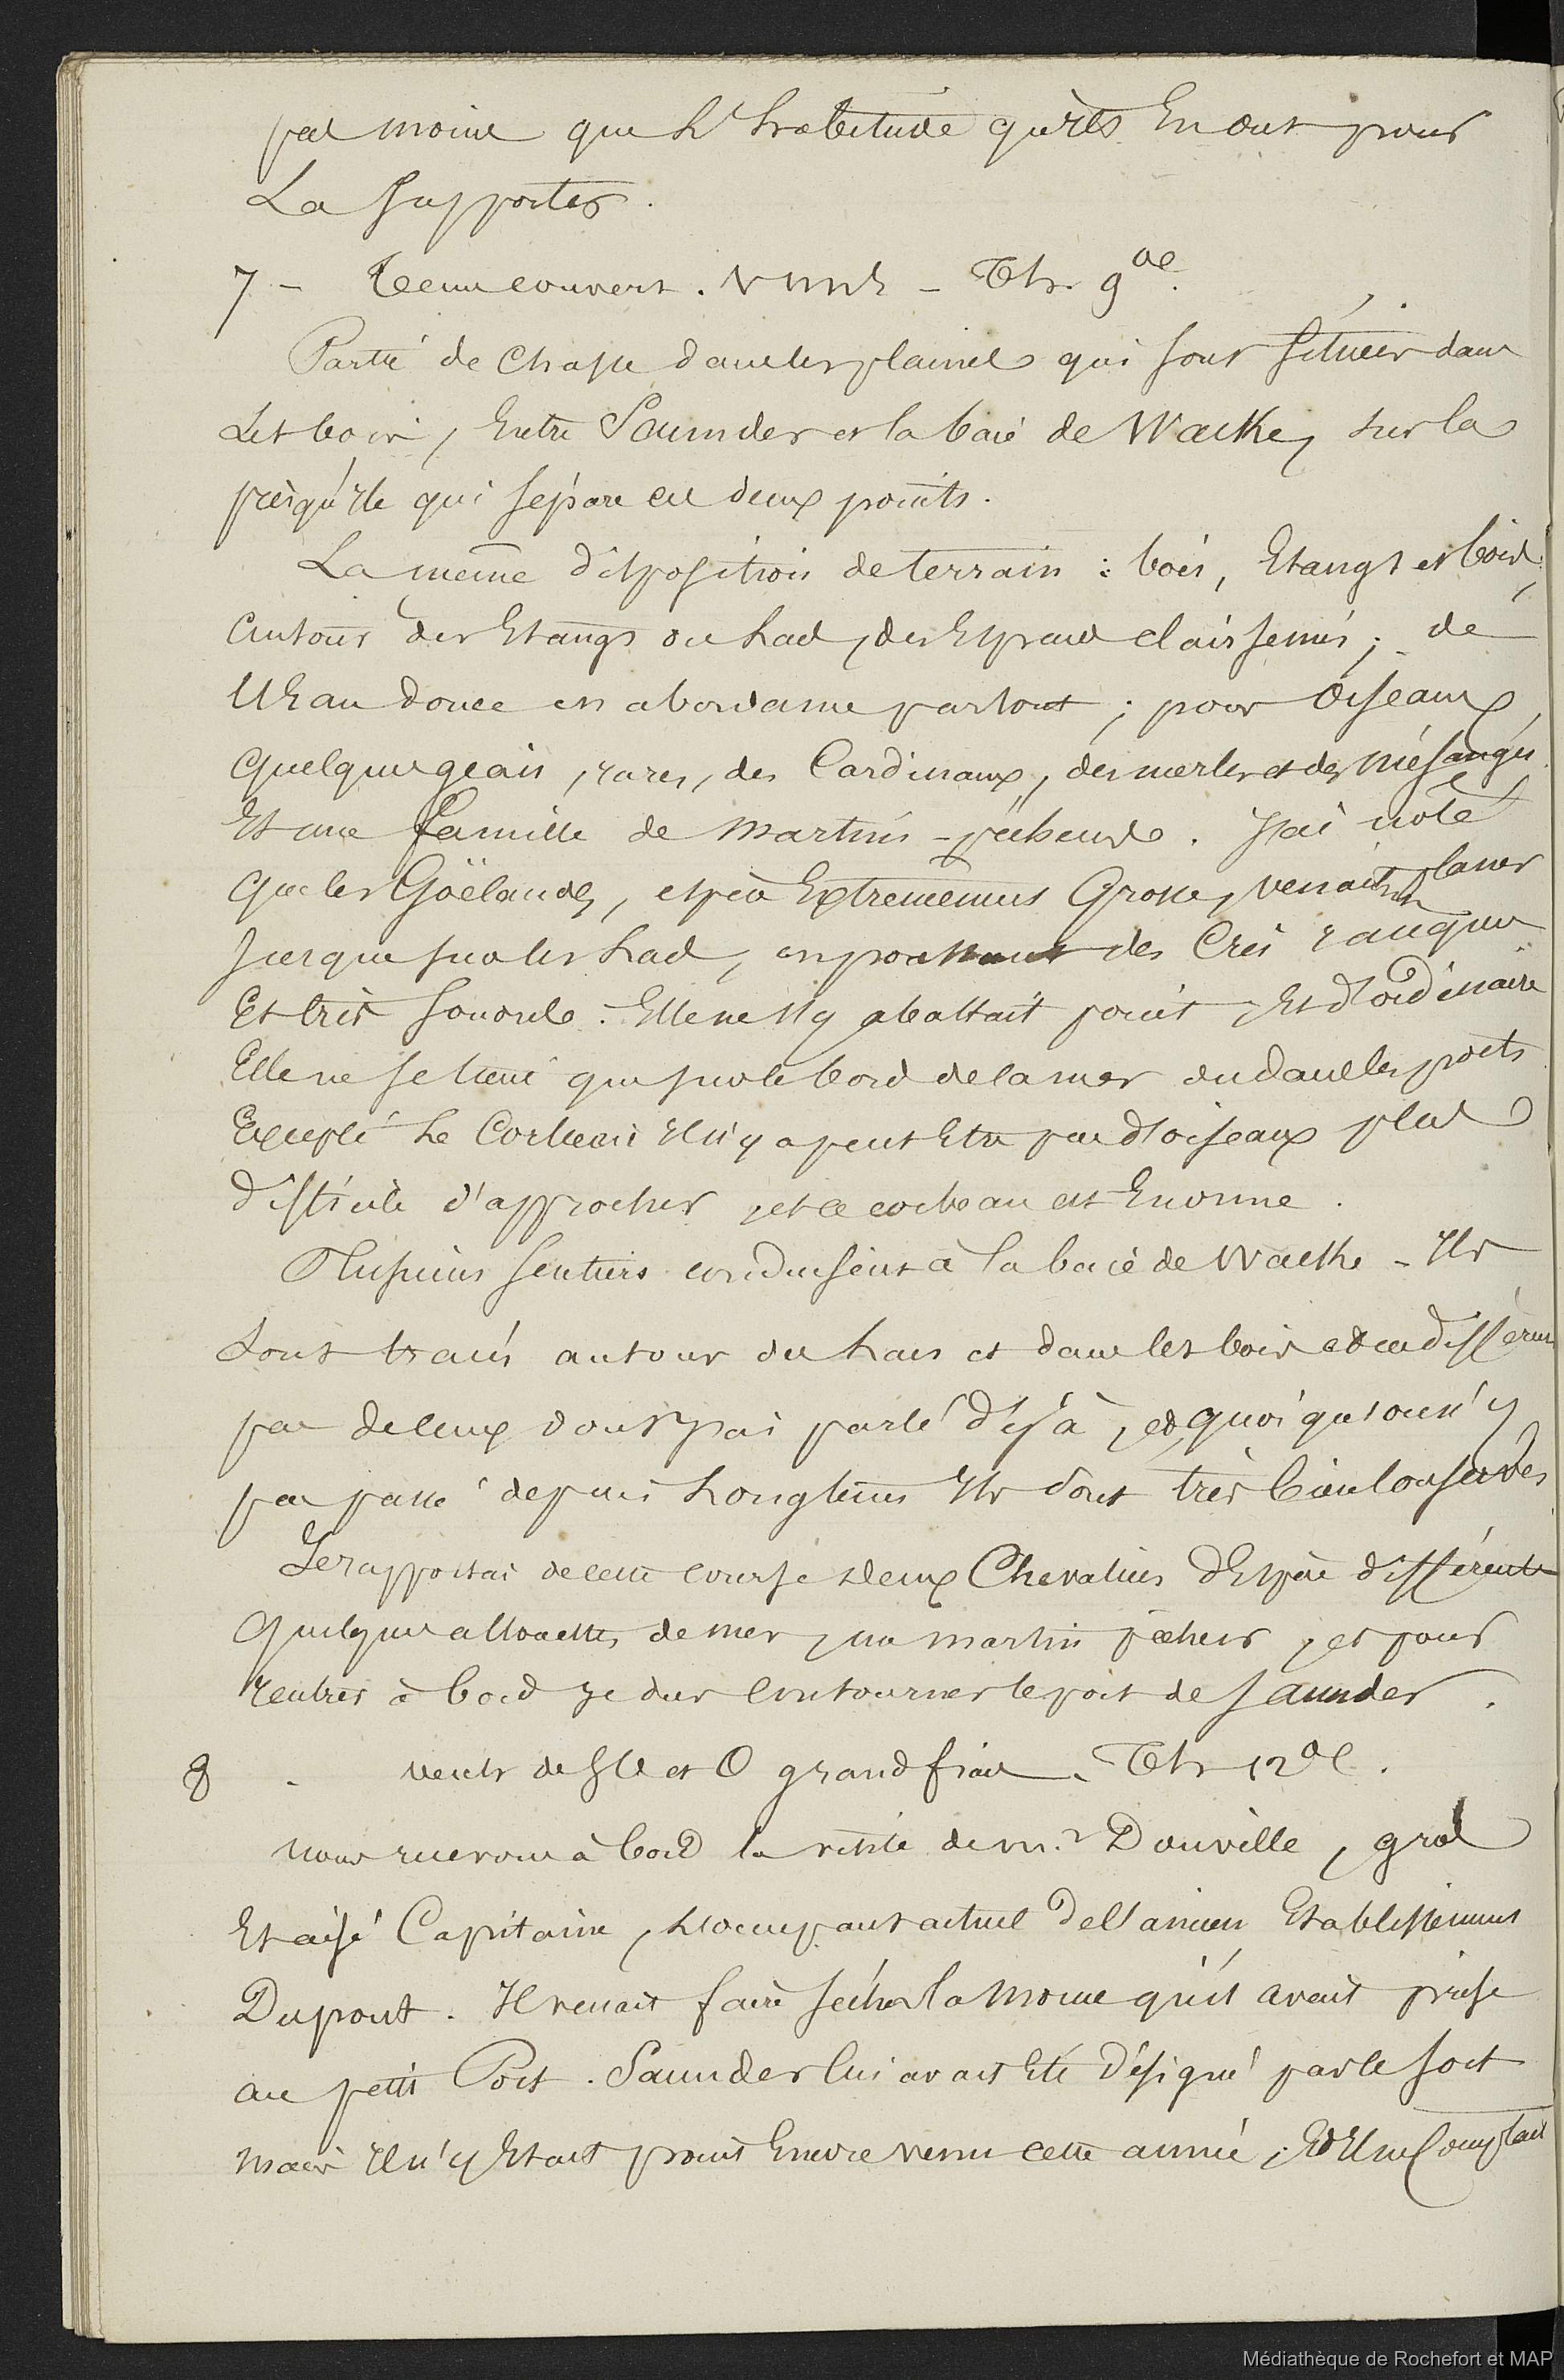 pas moins que L'habitude qu'ils En ont pour
La supporter.
7 - Tems couvert. - Thr. 9°c.
Partie de chasse dans les plaines qui sont situées dans
Les bois, Entre Saunders et la baie de Wacke, sur la
presqu'Ile qui sépare ces deux points.
La même disposition de terrain : bois, Etangs et bois;
autour des Etangs ou Lacs, des Espaces clairsemés; de
L'Eau douce en abondance partout ; pour oiseaux,
quelques geais, rares, des Cardinaux, des merles et des mésanges.
Et une famille de martins-pêcheurs. J'ai noté
que les Goëlands, espèce Extremement Grosse, venaient planer
jusque sur les Lacs, en poussant des Cris rauques
Et très sonores. Elle ne s'y abattait point, Et d'ordinaire
Elle ne se tient que sur le bord de la mer ou dans les ports
Excepté Le Corbeau Il n'y a peut Etre pas d'oiseaux plus
difficile d'approcher, et ce corbeau est Enorme.
Plusieurs sentiers conduisent à la baie de Wacke - Ils
sont tracés autour des Lacs et dans les bois et ne diffèrent
pas de ceux dont j'ai parlé déjà, et quoiqu'on n'y
pas passé depuis Longtems Ils sont très bien conservés.
Je rapportai de cette course deux Chevaliers d'Espèce différente
quelques allouettes de mer, un martin pêcheur, et pour
rentrer à bord je dus contourner le port de Saunders.
8 - vents de SO et O grand frais. Thr 12°c.
nous recevons à bord la visite de mr. Douville, gros
Et aisé Capitaine, L'occupant actuel de l'ancien Etablissement
Dupont. Il venait faire sécher la morue qu'il avait prise
au petit Port. Saunders lui avait Eté désigné par le sort
mais Il n'y Etait point Encore venu cette année, Et Il ne comptait